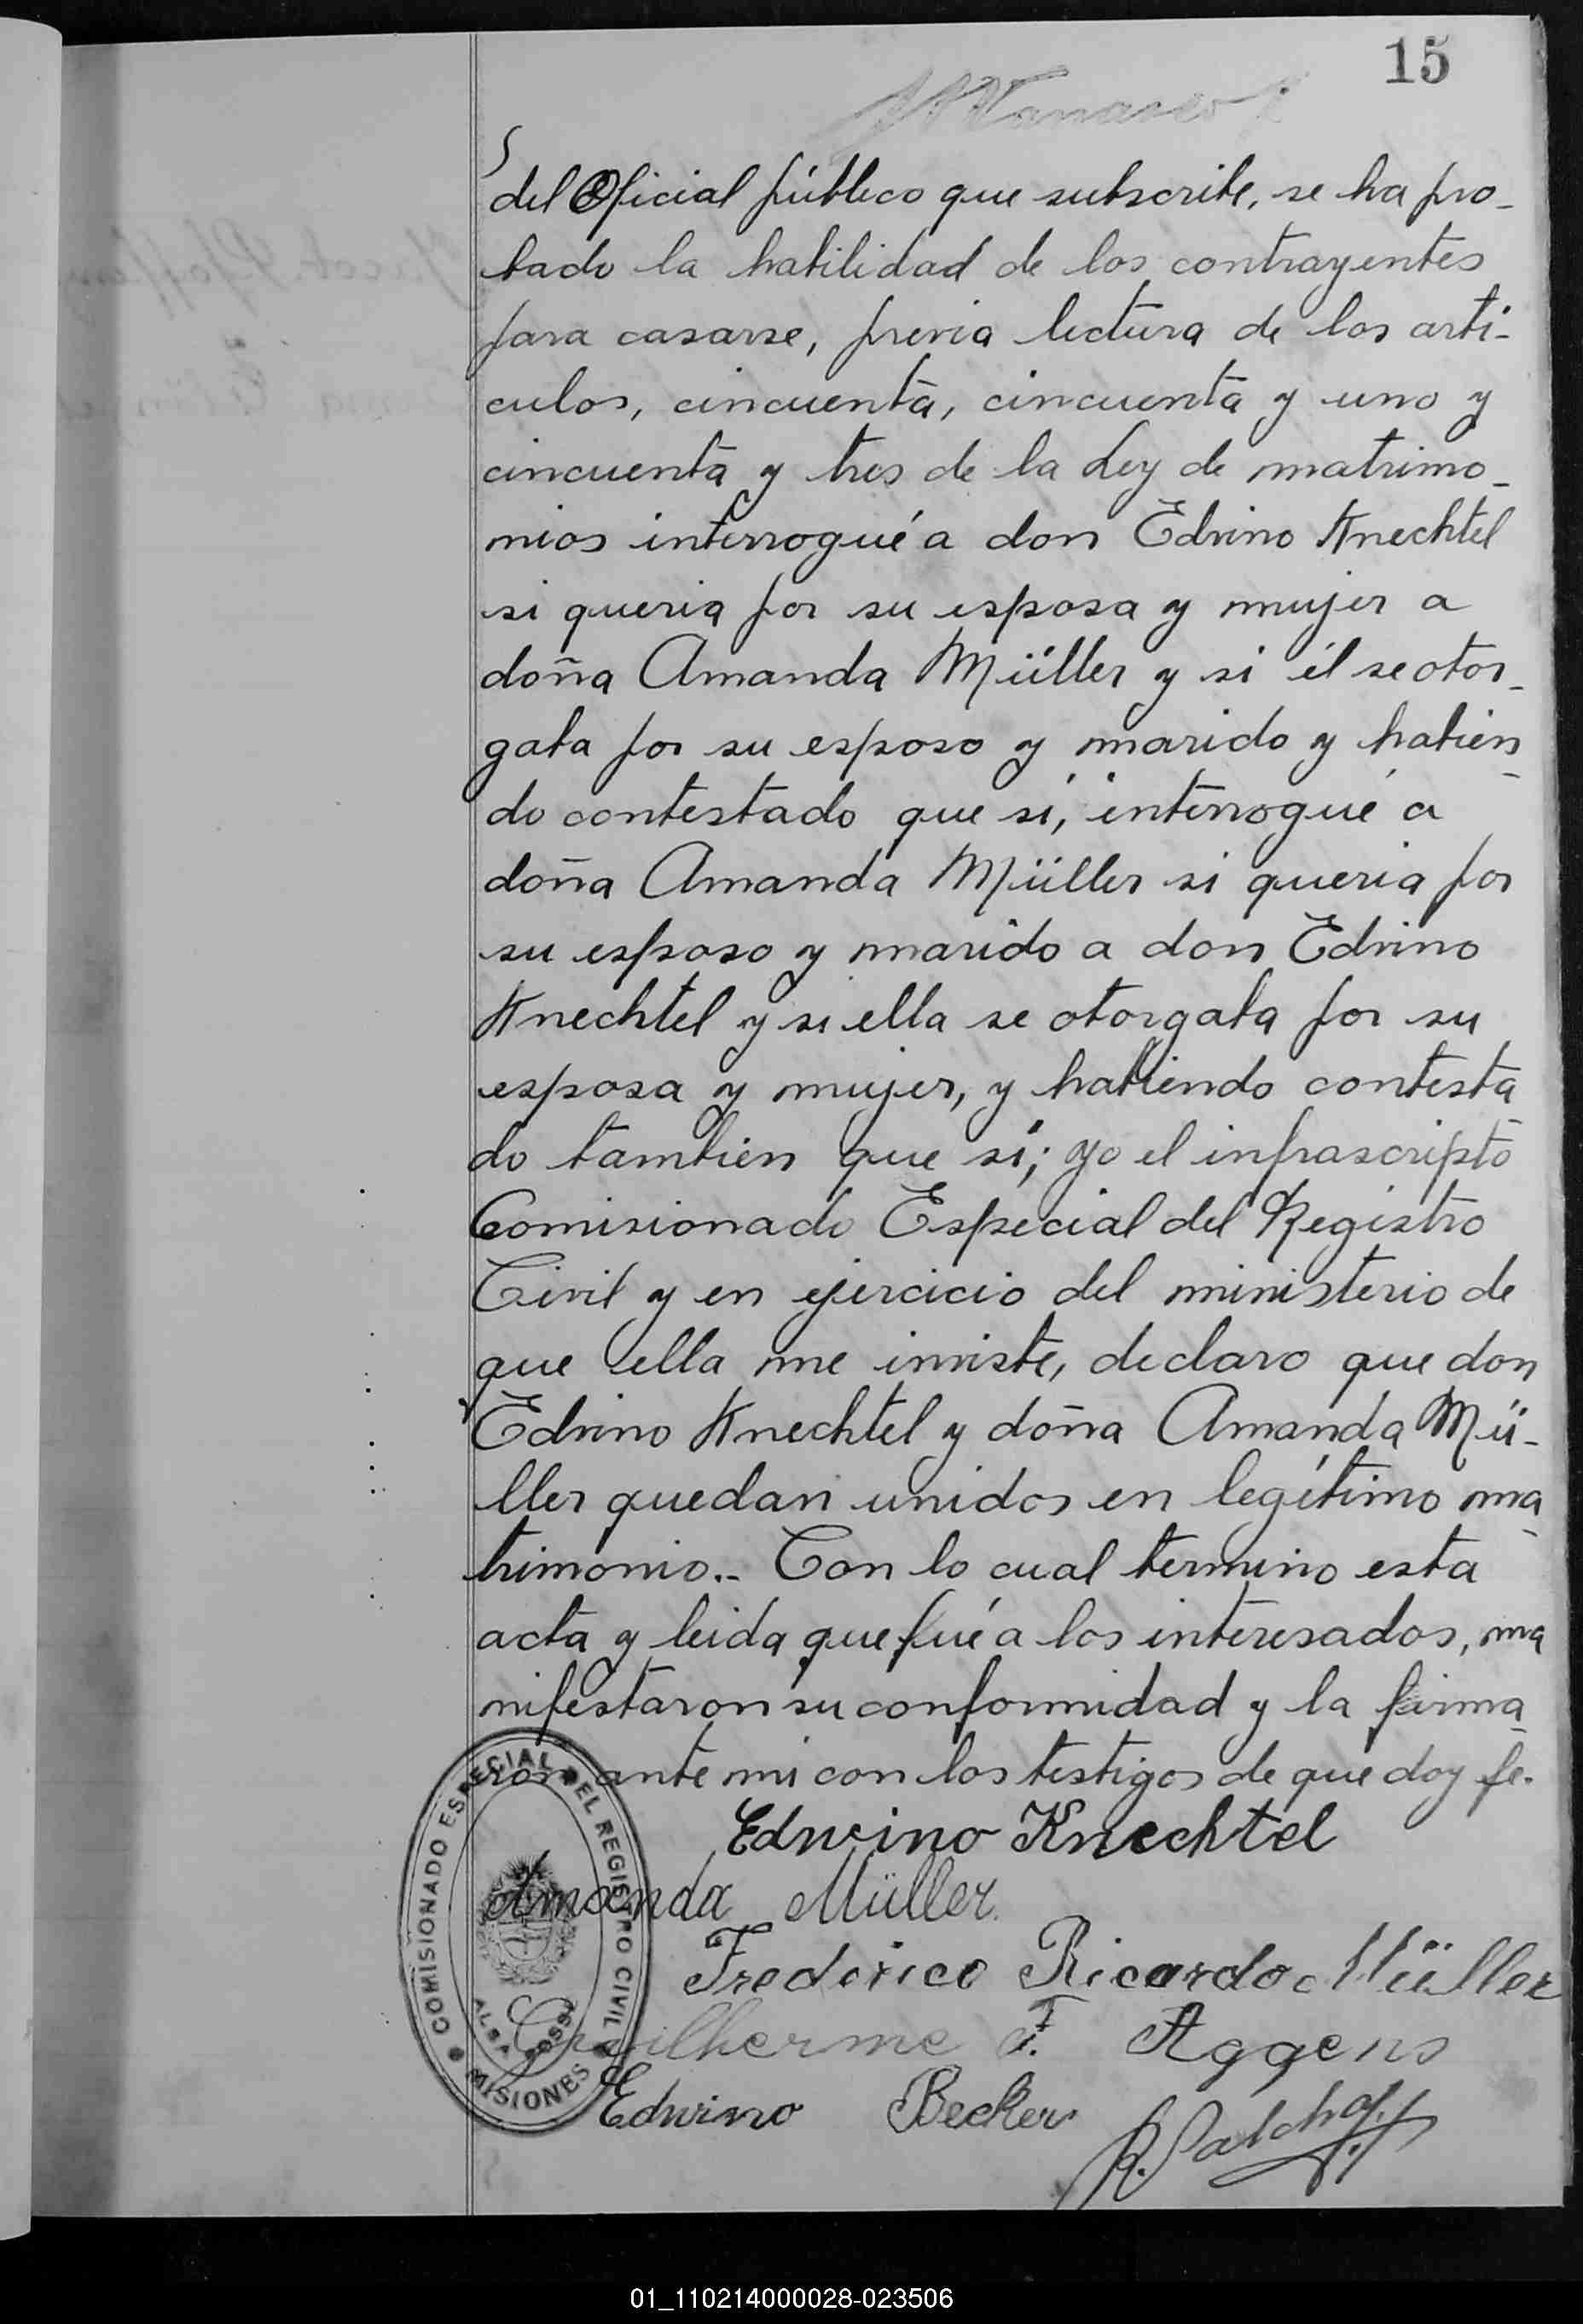 15
del Oficial público que subscribe, se ha pro-
bado la habilidad de los contrayentes
para casarse, previa lectura de los artí-
culos, cincuenta, cincuenta y uno y
cincuenta y tres de la Ley de matrimo-
nios interrogué a don Edvino Knechtel
si queria por su esposa y mujer a
doña Amanda Müller y si él se otor-
gaba por su esposo y marido y habien-
do contestado que sí, interrogué a
doña Amanda Müller si queria por
su esposo y marido a don Edvino
Knechtel y si ella se otorgaba por su
esposa y mujer, y habiendo contesta-
do tambien que sí; yo el infrascripto
Comisionado Especial del Registro
Civil y en ejercicio del ministerio de
que ella me inviste, declaro que don
Edvino Knechtel y doña Amanda Mü-
ller quedan unidos en legítimo ma-
trimonio.- Con lo cual termino esta
acta y leida que fué a los interesados, ma
nifestaron su conformidad y la firma-
ron ante mi con los testigos de que doy fe.
Edwino Knechtel
Amanda Müller.
Frederico Ricardo Müller
Guilherme F. Aggens
Edwino Becker
COMISIONADO ESPECIAL DEL REGISTRO CIVIL
MISIONES
01_110214000028-023506